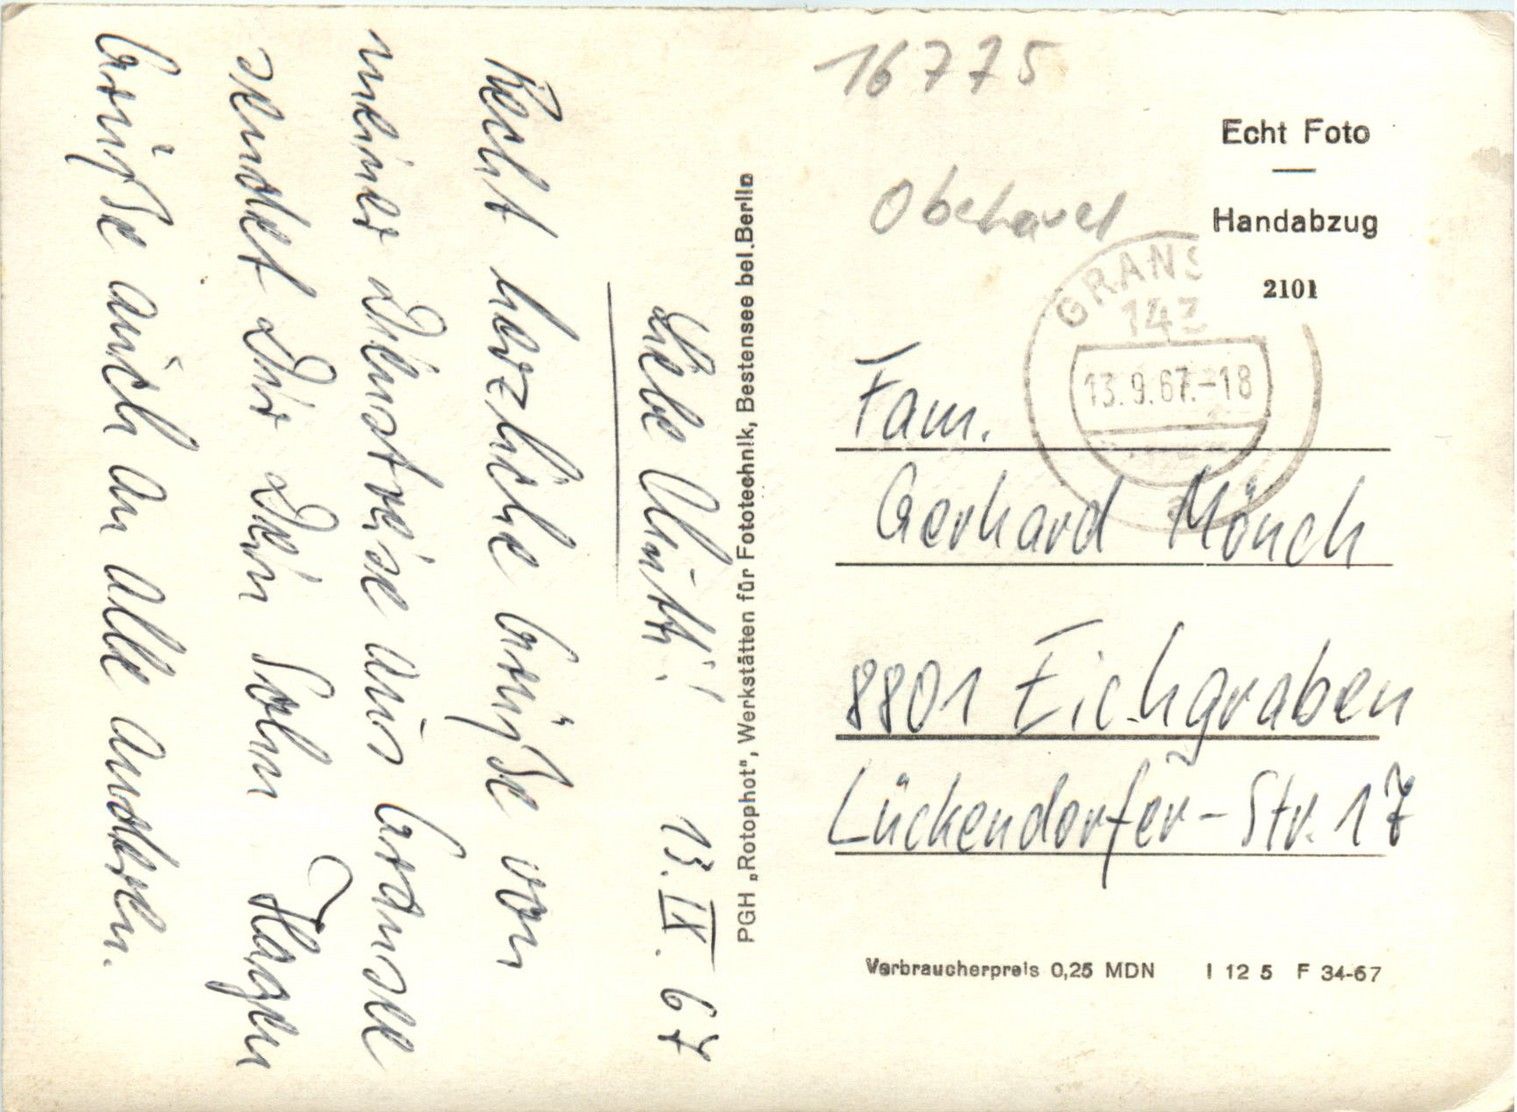 Liebe Mutti! 13. IX. 67
Recht herzliche Grüße von
meiner Dienstreise aus Gransee
sendet Dir Dein Sohn Hagen
Grüße auch an alle anderen.
PGH „Rotophot", Werkstätten für Fototechnik, Bestensee bei Berlin
16775
Oberhavel
Echt Foto
Handabzug
2101
GRANS
143
13.9.67.-18
a
Fam.
Gerhard Mönch
8801 Eichgraben
Lückendorfer-Str. 17
Verbraucherpreis 0,25 MDN I 12 5 F 34-67